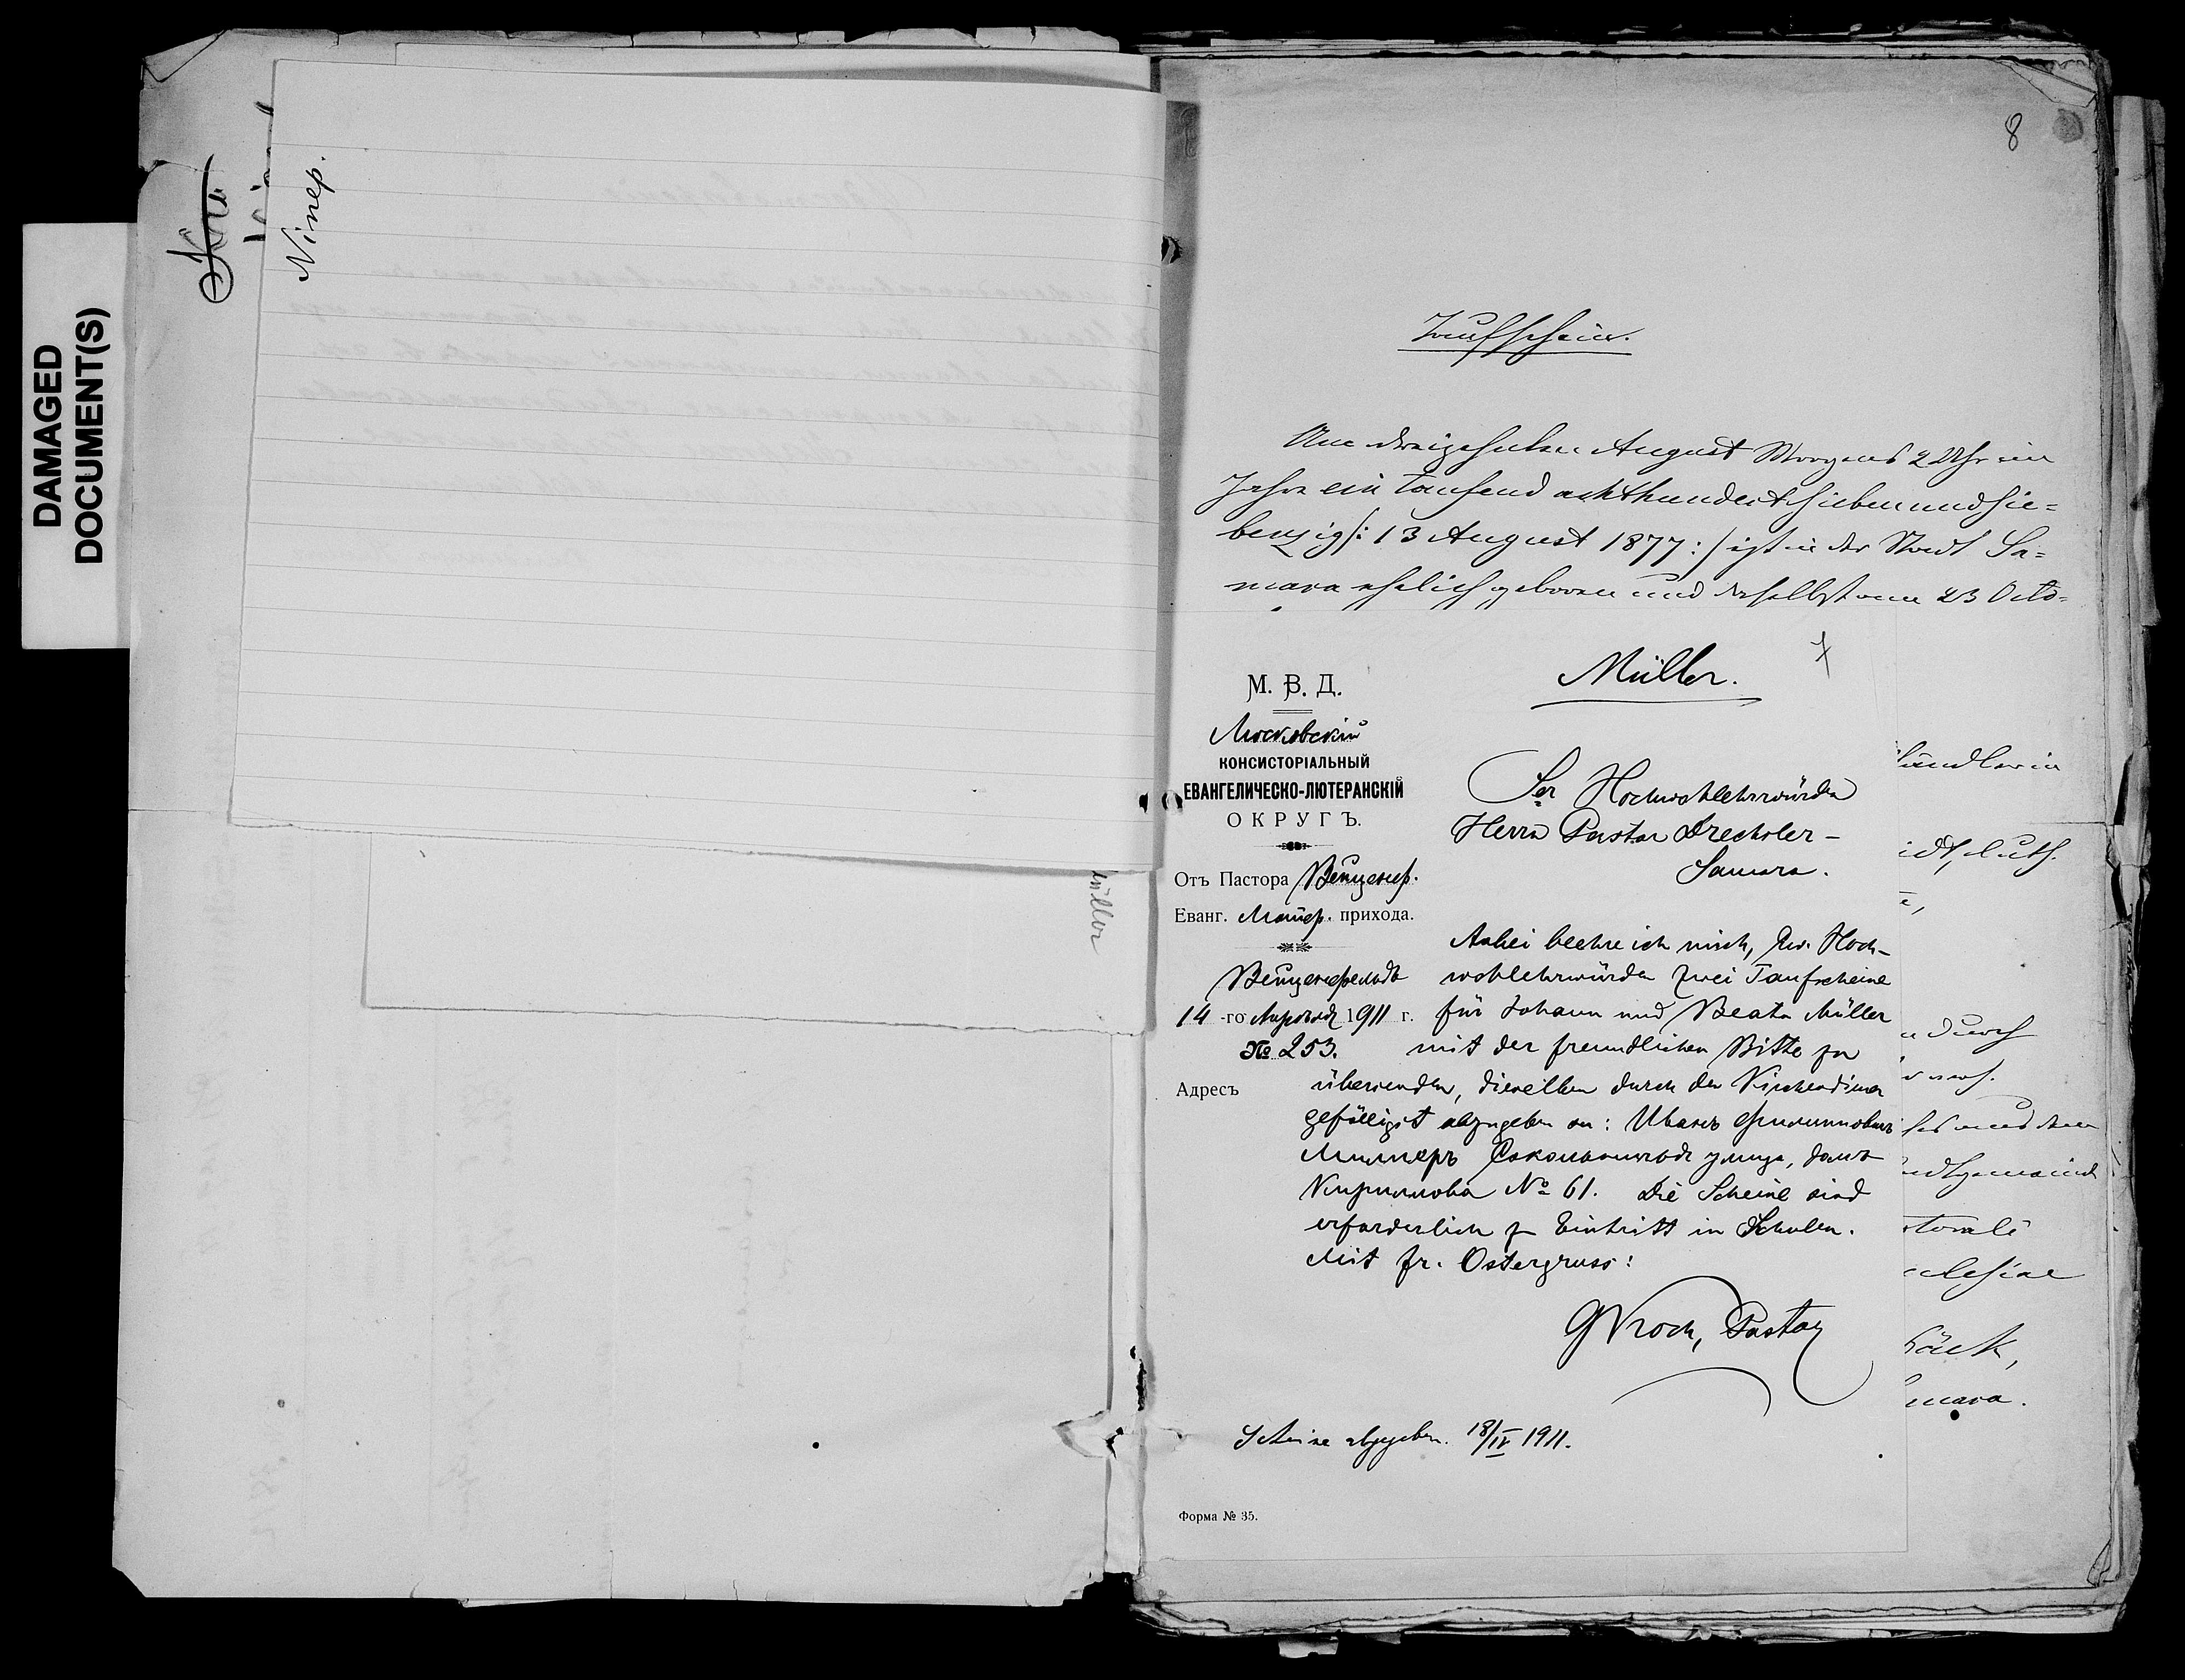 DAMAGED
DOCUMENT(S)
Niнер.
müller
8
Taufschein.
Am dreizehnten August Morgens 2 Uhr im
Jahre ein tausend achthundert sieben und sie=
benzig /: 13 August 1877 :/ ist in der Stadt Sa=
mara ehelich geboren und daselbst am 23 Octo=
7
Müller.
М. В. Д.
Московскій
КОНСИСТОРІАЛЬНЫЙ
ЕВАНГЕЛИЧЕСКО-ЛЮТЕРАНСКІЙ
ОКРУГЪ.
Отъ Пастора
Еванг. Лютер. прихода.
14-го Апрѣля 1911 г.
№ 253.
Адресъ
Sr Hochwohlehrwürden
Herrn Pastor Drechsler –
Samara.
Anbei beehre ich mich, Ew. Hoch-
wohlehrwürden zwei Taufscheine
für Johann und Beata Müller
mit der freundlichen Bitte zu
übersenden, dieselben durch den Kirchendiener
gefälligst abzugeben an: Иванъ Филипповичъ
Миллеръ улица, домъ
Кириллова № 61. Die Scheine sind
erforderlich z. Eintritt in Schulen.
Mit fr. Ostergruss:
Pastor
Scheine abgegeben. 18/IV 1911.
Форма № 35.
ändler in
idt, luth.
durch
und dem
storale
mara.